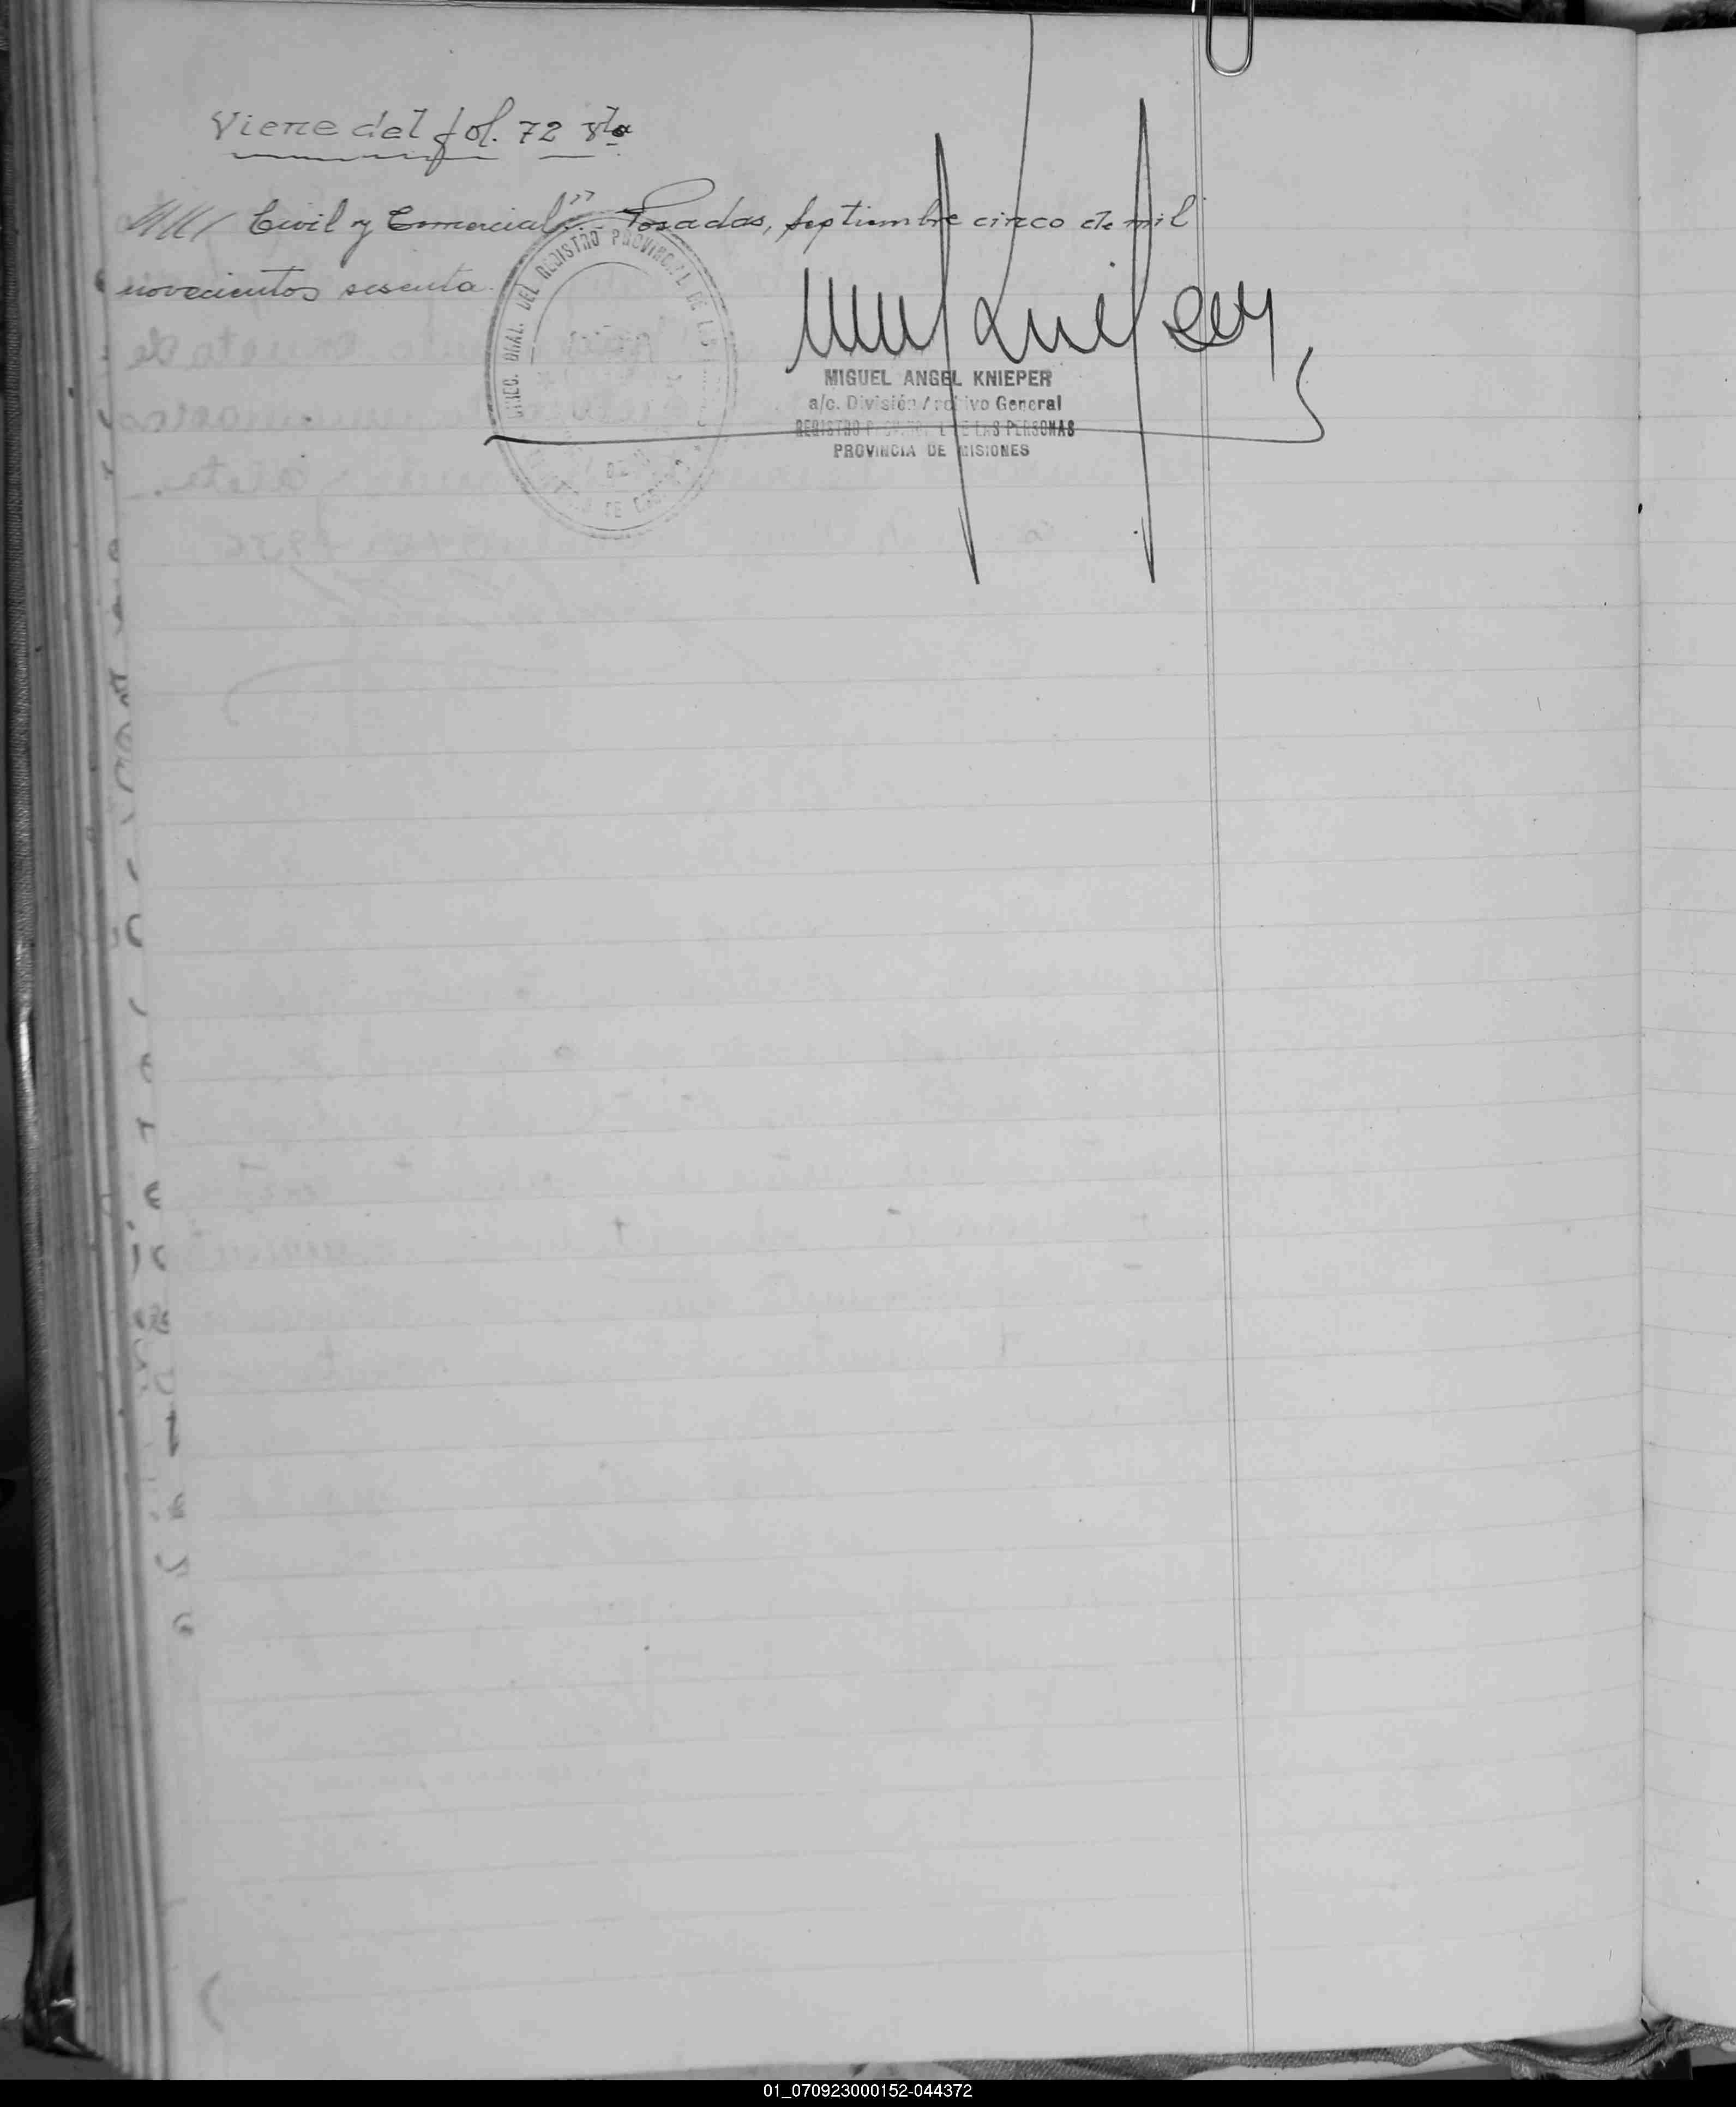 Viene del fol. 72 vta
//// Civil y Comercial".- Posadas, septiembre cinco de mil
novecientos sesenta.
DIREC. GRAL. DEL REGISTRO PROVINCIAL DE LAS
MIGUEL ANGEL KNIEPER
a/c. División Archivo General
REGISTRO PROVINCIAL DE LAS PERSONAS
PROVINCIA DE MISIONES
01_070923000152-044372